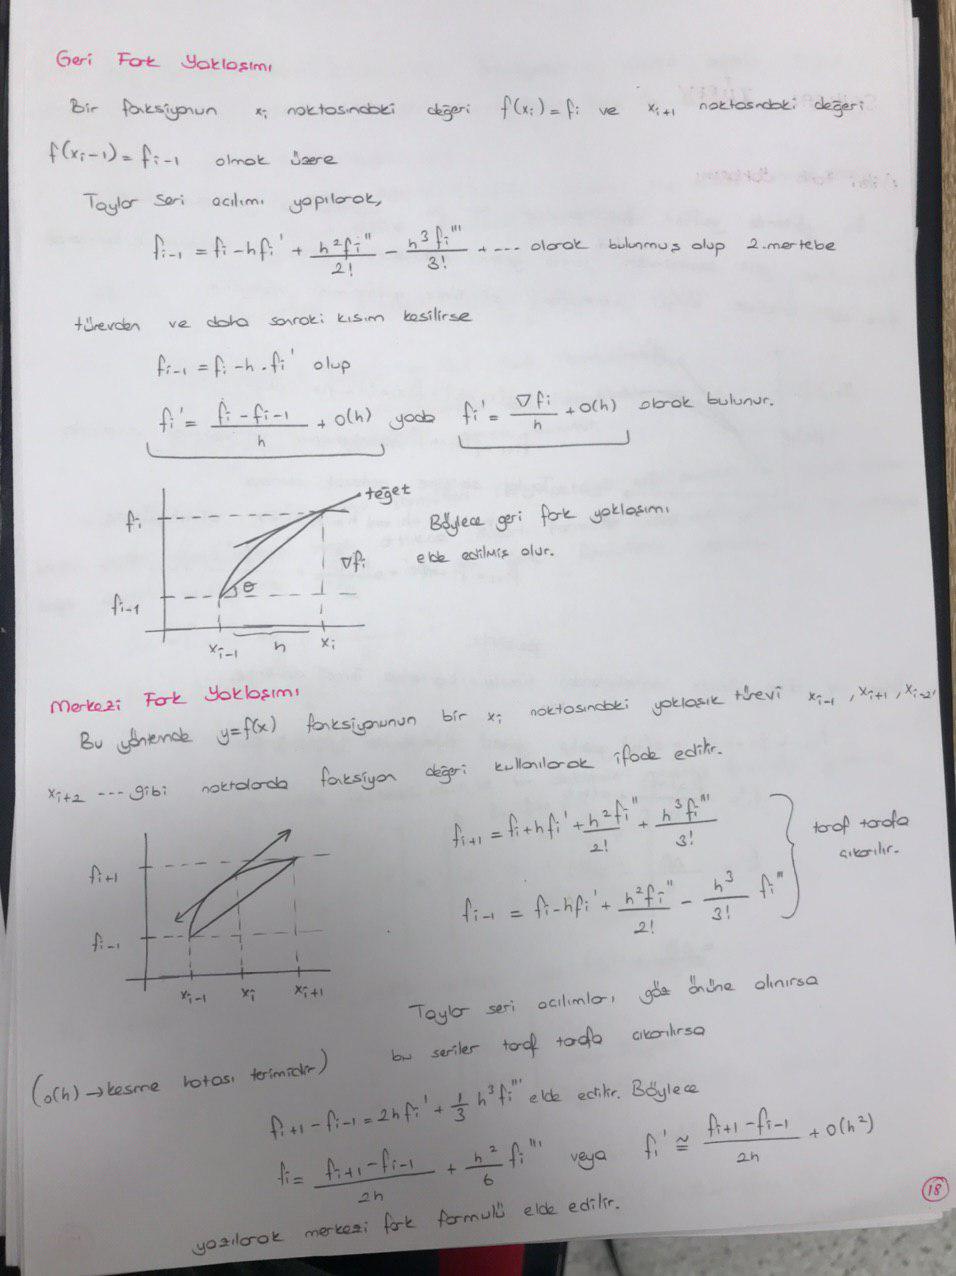 Geri Fark Yaklaşımı
Bir fonksiyonun xᵢ noktasındaki değeri f(xᵢ) = fᵢ ve xᵢ₊₁ noktasındaki değeri
f(xᵢ₋₁) = fᵢ₋₁ olmak üzere
Taylor seri açılımı yapılarak,
fᵢ₋₁ = fᵢ - hfᵢ' + h²fᵢ''/2! - h³fᵢ'''/3! + --- olarak bulunmuş olup 2.mertebe
türevden ve daha sonraki kısım kesilirse
fᵢ₋₁ = fᵢ - h . fᵢ' olup
fᵢ' = (fᵢ - fᵢ₋₁)/h + O(h) yada fᵢ' = ∇fᵢ/h + O(h) olarak bulunur.
teğet
fᵢ
Böylece geri fark yaklaşımı
elde edilmiş olur.
∇fᵢ
θ
fᵢ₋₁
xᵢ₋₁ h xᵢ
Merkezi Fark Yaklaşımı
Bu yöntemde y=f(x) fonksiyonunun bir xᵢ noktasındaki yaklaşık türevi xᵢ₋₁, xᵢ₊₁, xᵢ₋₂,
xᵢ₊₂ --- gibi noktalarda fonksiyon değeri kullanılarak ifade edilir.
fᵢ₊₁ = fᵢ + hfᵢ' + h²fᵢ''/2! + h³fᵢ'''/3!
fᵢ₋₁ = fᵢ - hfᵢ' + h²fᵢ''/2! - h³/3! fᵢ'''
taraf tarafa
çıkarılır.
fᵢ₊₁
fᵢ₋₁
xᵢ₋₁ xᵢ xᵢ₊₁
Taylor seri açılımları göz önüne alınırsa
bu seriler taraf tarafa çıkarılırsa
(O(h) → kesme hatası terimidir)
fᵢ₊₁ - fᵢ₋₁ = 2hfᵢ' + 1/3 h³fᵢ''' elde edilir. Böylece
fᵢ = (fᵢ₊₁ - fᵢ₋₁)/2h + h²/6 fᵢ''' veya fᵢ' ≅ (fᵢ₊₁ - fᵢ₋₁)/2h + O(h²)
yazılarak merkezi fark formülü elde edilir.
18